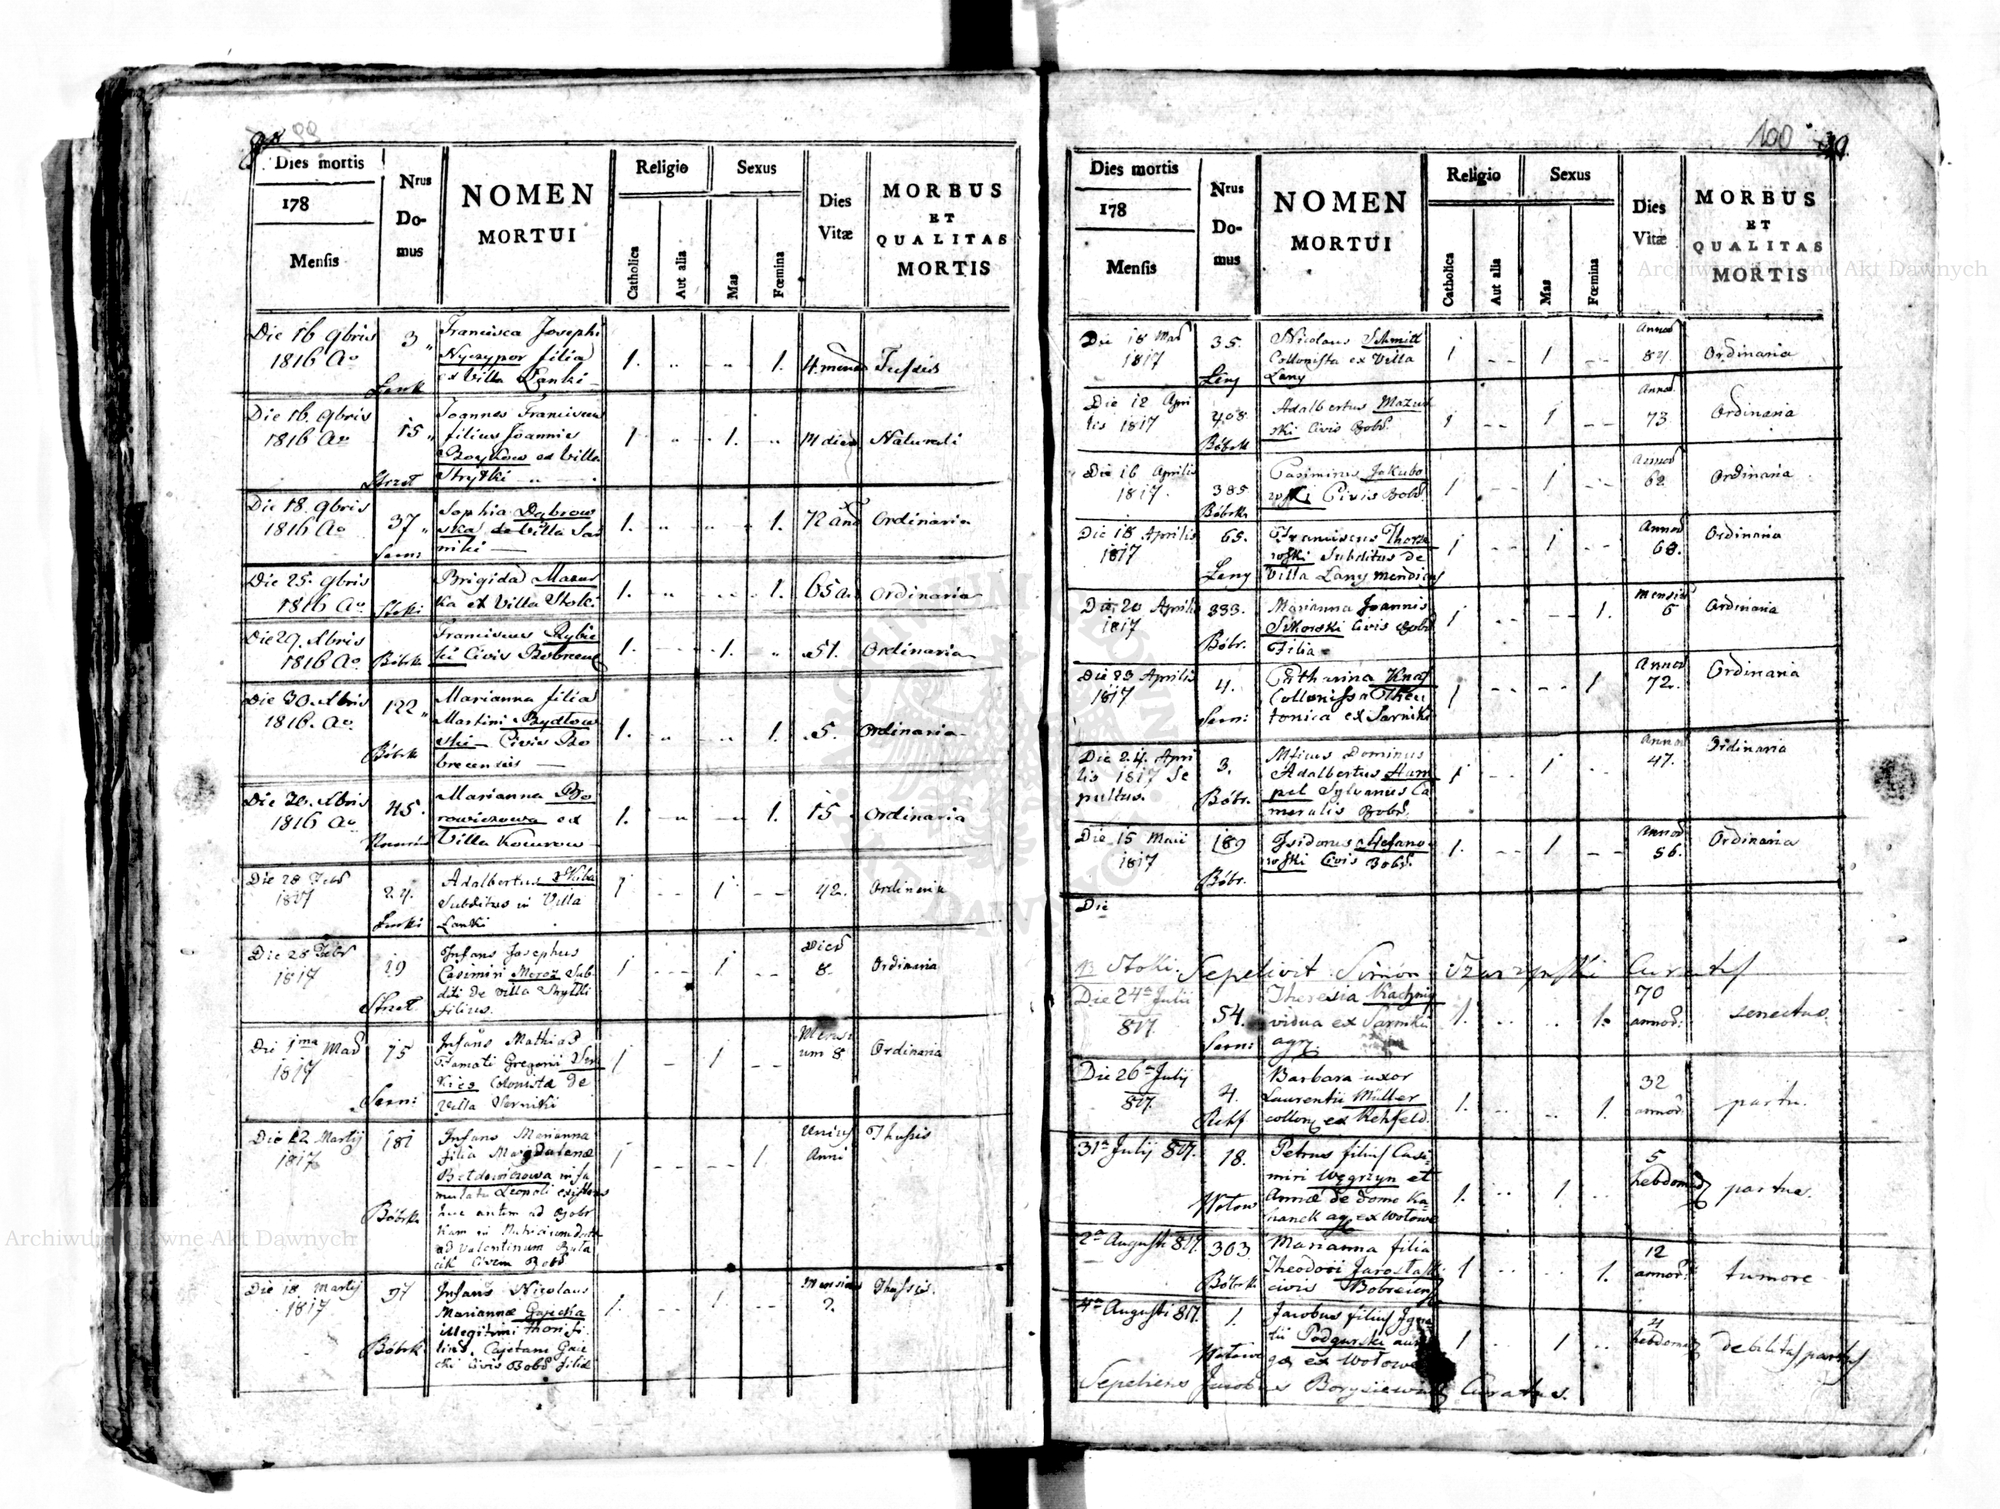 99
Dies mortis
178
Mensis
Nrus
Do-
mus
NOMEN
MORTUI
Religio
Catholica
Aut alia
Sexus
Mas
Fœmina
Dies
Vitæ
MORBUS
ET
QUALITAS
MORTIS
Die 16 9bris
1816 Ao
3
Lank
Francisca Josephi
Nyczypor filia
ex Villa Lanki
1. 1.
4 mens
Tussis
Die 16. 9bris
1816 Ao
15
Strzeł
Joannes Franciscus
filius Joannis
Boykow ex Villa
Stryłki
1 1.
14 dies
Naturali
Die 18. 9bris
1816 Ao
37
Sarni
Sophia Dąbrow
ska de Villa Sar
niki
1. 1.
72 an
Ordinaria
Die 25. 9bris
1816 Ao
Stoki
Brigida Mazur
ka ex Villa Stoki
1. 1.
65 a.
Ordinaria
Die 29. Xbris
1816 Ao
Bóbrka
Franciscus Rybic
ki Civis Bobrecens
1. 1.
51.
Ordinaria
Die 30. Xbris
1816. Ao
122
Bóbrk
Marianna filia
Martini Bydłow
ski Civis Bo
brecensis
1. 1.
5.
Ordinaria
Die 30. Xbris
1816 Ao
45.
Marianna Bo
rowiczowa ex
Villa Kourow
1. 1.
15
Ordinaria
Die 28 Feb
1817
24.
Lanki
Adalbertus Skiba
Subditus in Villa
Lanki
1 1
42.
Ordinaria
Die 28 Febr
1817
19
Strzeł
Infans Josephus
Casimiri Mroz Sub
diti de Villa Stryłki
filius.
1 1
Dies
8.
Ordinaria
Die 1ma Mar
1817
15
Sarni
Infans Mathias
Famati Gregorii
Colonista de
Villa Serniki
1 1
Mensi
um 8
Ordinaria
Die 12 Martij
1817
181
Bóbrka
Infans Marianna
filia Magdalenæ
in fa
mulatu Leopoli existens
huc autem ad Bobr
kam
ad Valentinum
Civem Bobr
1 1
Unius
Anni
Thussis
Die 18 Martij
1817
97
Bóbrk
Infans Nicolaus
Mariannæ Gajecka
illegitimi thori fi
lius. Cajetani Gaje
cki Civis Bobr filiæ
1. 1
Mensium
2.
Thussis.
100
99
Dies mortis
178
Mensis
Nrus
Do-
mus
NOMEN
MORTUI
Religio
Catholica
Aut alia
Sexus
Mas
Fœmina
Dies
Vitæ
MORBUS
ET
QUALITAS
MORTIS
Die 18 Mar
1817
35.
Łany
Nicolaus Schmitt
Collonista ex Villa
Lany
1 1
Annor
84.
Ordinaria
Die 12 Apri
lis 1817
408
Bóbrk
Adalbertus Mazur
ski Civis Bobr.
1 1
Annor
73
Ordinaria
Die 16 Aprilis
1817.
385
Bóbrka
Casimirus Jakubo
wski Civis Bobr
1 1
Annor
62.
Ordinaria
Die 18 Aprilis
1817
65.
Łany
Franciscus Thorze
wski Subditus de
Villa Lany mendicus
1 1
Annor
68.
Ordinaria
Die 20 Aprilis
1817
333.
Bóbr.
Marianna Joannis
Sikorski Civis Bobr
Filia
1 1.
Mensium
6
Ordinaria
Die 23 Aprilis
1817
4.
Sarni
Catharina Knaf
Collonissa Theu
tonica ex Sarniki
1 1
Annor
72.
Ordinaria
Die 24. Apri
lis 1817 Se
pultus.
3.
Bóbr.
Mficus Dominus
Adalbertus Ham
pel Sylvanus Ca
meralis Bobr.
1 1
Annor
47.
Ordinaria
Die 15 Maii
1817
189
Bóbr.
Isidorus Stefano
wski Civis Bobr.
1. 1
Annor
56.
Ordinaria
Die
Stoki. Sepelivit Simon Curatus
Die 24ta Julii
817.
54.
Sarni
Theresia Kachnij
vidua ex Sarniki
agr.
1. 1.
70
annor:
senectus.
Die 26ta July
817.
4.
Rehf
Barbara uxor
Laurentii Müller
collon ex Rehfeld.
1. 1.
32
annor:
partu.
31ta July 817.
18.
Wołow
Petrus filius Casi
miri Węgrzyn et
Annæ de domo Ka
hanek agr ex Wołowe
1. 1
5
hebdomad
partus.
2da Augusti 817.
303.
Bóbrk
Marianna filia
Theodori Jarosłaski
civis Bobrecens
1 1.
12
annor:
tumore
4ta Augusti 817.
1.
Wołowe
Jacobus filius Igna
tii Podgurski auri
gæ ex Wołowe
1 1
4
hebdomad
debilitas partus
Sepeliens Jacobus Borysiewicz Curatus.
Archiwum Główne Akt Dawnych
Archiwum Główne Akt Dawnych
ARCHIWUM GŁÓWNE AKT DAWNYCH